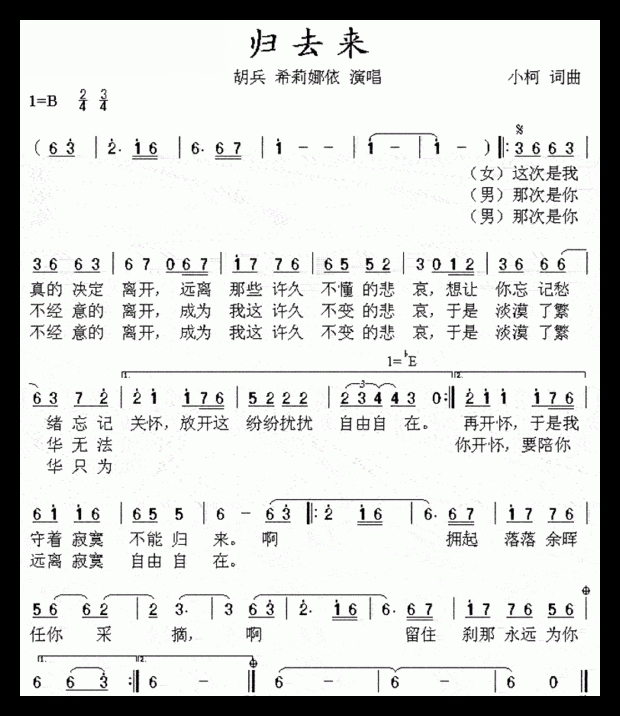 归去来
胡兵 希莉娜依 演唱 小柯 词曲
1=B 2/4 3/4
( 6 3 | 2· 1 6 | 6· 6 7 | 1 - - | 1 - | 1 - ) ‖: 3 6 6 3 |
（女）这次是我
（男）那次是你
（男）那次是你
3 6 6 3 | 6 7 0 6 7 | 1 7 7 6 | 6 5 5 2 | 3 0 1 2 | 3 6 6 6 |
真的 决定 离开，远离 那些 许久 不懂 的悲 哀，想让 你忘 记愁
不经 意的 离开，成为 我这 许久 不变 的悲 哀，于是 淡漠 了繁
不经 意的 离开，成为 我这 许久 不变 的悲 哀，于是 淡漠 了繁
1=♭E
1. 2.
6 3 7 2 | 2 1 1 7 6 | 5 2 2 2 | 2 3 4 4 3 0 :‖ 2 1 1 1 7 6 |
绪 忘记 关怀，放开这 纷纷扰扰 自由自 在。 再开怀，于是我
华 无法 你开怀，要陪你
华 只为
6 1 1 6 | 6 5 5 | 6 - 6 3 ‖: 2 1 6 | 6· 6 7 | 1 7 7 6 |
守着 寂寞 不能 归 来。啊 拥起 落落 余晖
远离 寂寞 自由 自 在。
5 6 6 2 | 2 3· | 3 6 3 | 2· 1 6 | 6· 6 7 | 1 7 7 6 5 6 |
任你 采 摘， 啊 留住 刹那 永远 为你
1. 2.
6 6 3 :‖ 6 - | 6 - | 6 - | 6 - | 6 0 ‖